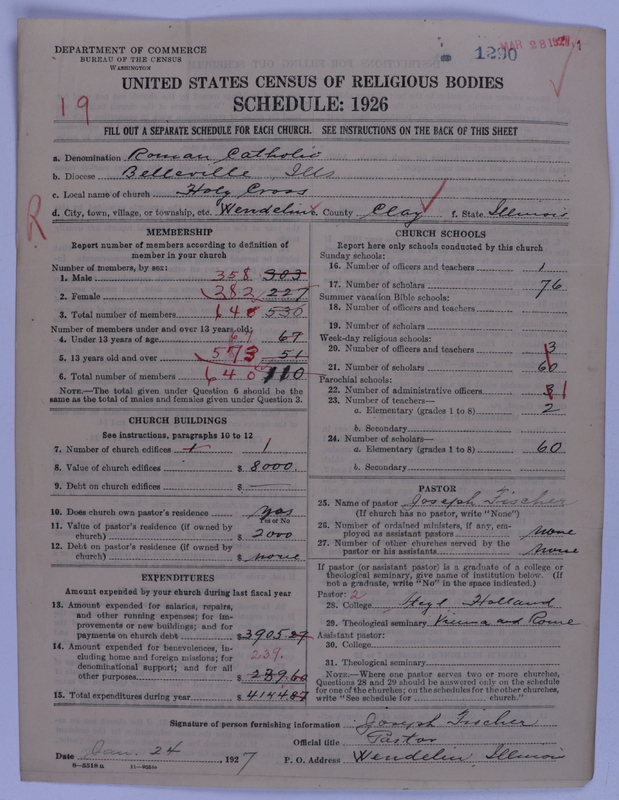 DEPARTMENT OF COMMERCE
BUREAU OF THE CENSUS
WASHINGTON
1290
MAR 28 1927
UNITED STATES CENSUS OF RELIGIOUS BODIES
19
SCHEDULE: 1926
FILL OUT A SEPARATE SCHEDULE FOR EACH CHURCH. SEE INSTRUCTIONS ON THE BACK OF THIS SHEET
a. Denomination Roman Catholic
b. Diocese Belleville Ills
c. Local name of church Holy Cross
d. City, town, village, or township, etc. Wendelin e. County Clay f. State Illinois
R
MEMBERSHIP
Report number of members according to definition of
member in your church
Number of members, by sex:
1. Male 358 303
2. Female 282 227
3. Total number of members 640 530
Number of members under and over 13 years old:
4. Under 13 years of age 67 67
5. 13 years old and over 573 51
6. Total number of members 640 110
NOTE.—The total given under Question 6 should be
same as the total of males and females given under Question 3.
CHURCH BUILDINGS
See instructions, paragraphs 10 to 12
7. Number of church edifices 1 1
8. Value of church edifices $ 8000.
9. Debt on church edifices $ —
10. Does church own pastor's residence yes
Yes or No
11. Value of pastor's residence (if owned by
church) $ 2000
12. Debt on pastor's residence (if owned by
church) $ none
EXPENDITURES
Amount expended by your church during last fiscal year
13. Amount expended for salaries, repairs,
and other running expenses; for im-
provements or new buildings; and for
payments on church debt $ 3905.27
14. Amount expended for benevolences, in-
cluding home and foreign missions; for
denominational support; and for all
other purposes 239. $ 239.60
15. Total expenditures during year $ 4144.87
CHURCH SCHOOLS
Report here only schools conducted by this church
Sunday schools:
16. Number of officers and teachers 1
17. Number of scholars 76
Summer vacation Bible schools:
18. Number of officers and teachers
19. Number of scholars
Week-day religious schools:
20. Number of officers and teachers 3
21. Number of scholars 60
Parochial schools:
22. Number of administrative officers 3 1
23. Number of teachers—
a. Elementary (grades 1 to 8) 2
b. Secondary
24. Number of scholars—
a. Elementary (grades 1 to 8) 60
b. Secondary
PASTOR
25. Name of pastor Joseph Fischer
(If church has no pastor, write "None")
26. Number of ordained ministers, if any, em-
ployed as assistant pastors none
27. Number of other churches served by the
pastor or his assistants none
If pastor (or assistant pastor) is a graduate of a college or
theological seminary, give name of institution below. (If
not a graduate, write "No" in the space indicated.)
Pastor: 2
28. College Steyl Holland
29. Theological seminary Vienna and Rome
Assistant pastor:
30. College
31. Theological seminary
NOTE.—Where one pastor serves two or more churches,
Questions 28 and 29 should be answered only on the schedule
for one of the churches; on the schedules for the other churches,
write "See schedule for church."
Signature of person furnishing information Joseph Fischer
Official title Pastor
Date Jan. 24 1927 P. O. Address Wendelin, Illinois
8—5518a